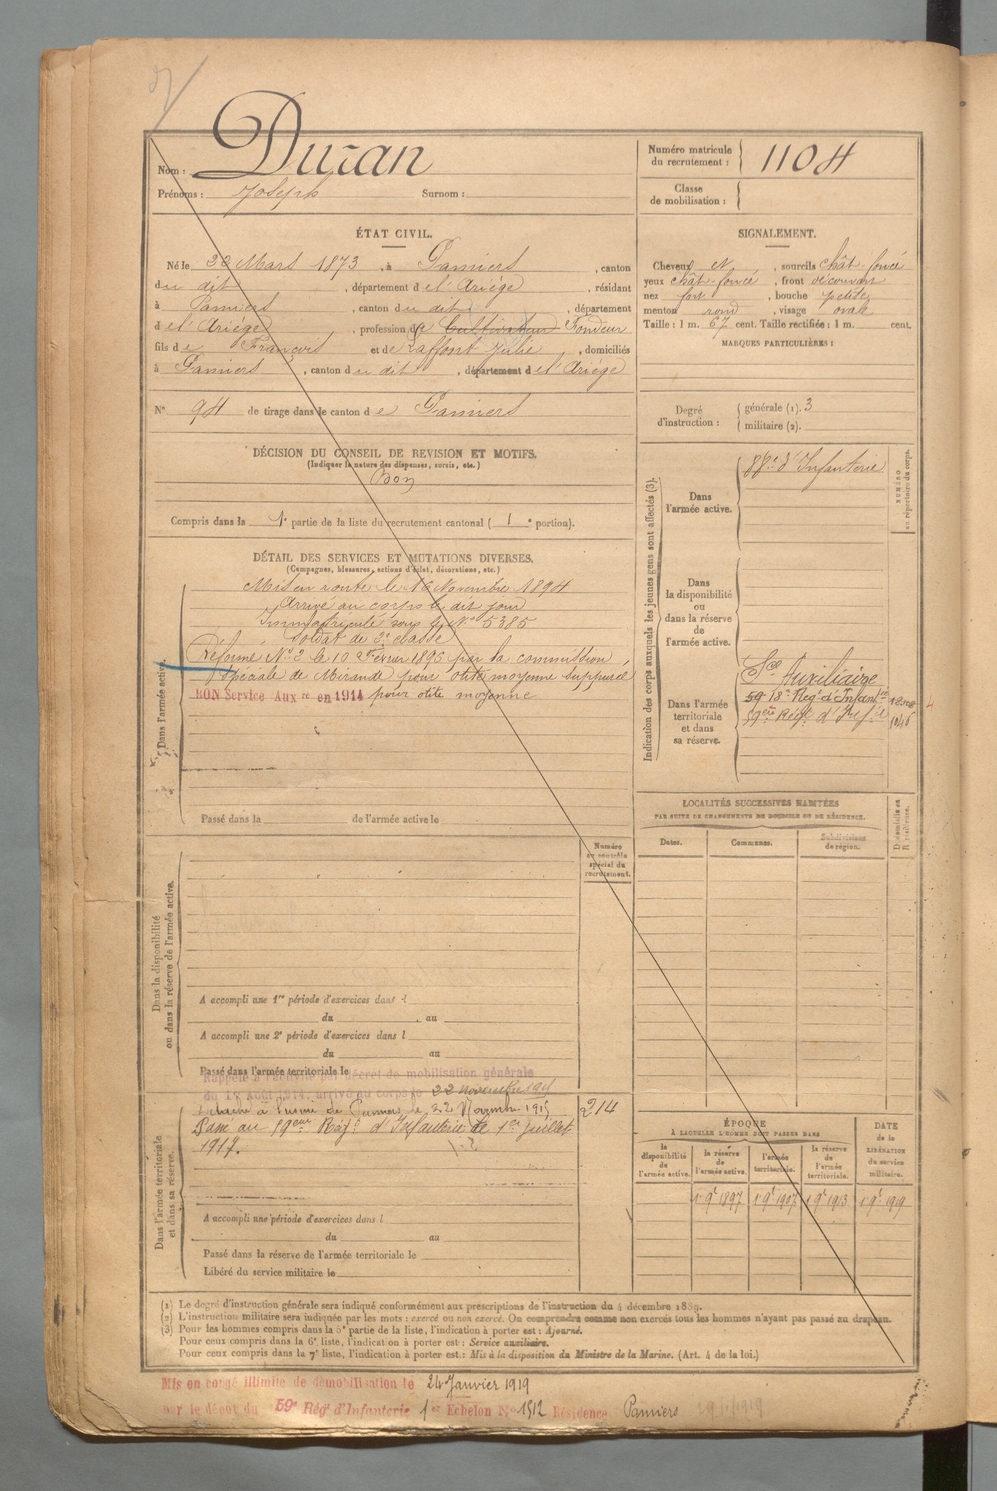 Nom : Duran
Prénoms : Joseph Surnom :
Numéro matricule du recrutement : 1104
Classe de mobilisation :
ÉTAT CIVIL.
Né le Mars 1873, à Pamiers, canton
du dit, département de l'Ariége, résidant
à Pamiers, canton du dit, département
de l'Ariége, profession de Cultivateur Fondeur
fils de François et de Laffont Julie, domiciliés
à Pamiers, canton du dit, département de l'Ariége
N° 94 de tirage dans le canton de Pamiers
SIGNALEMENT.
Cheveux et, sourcils chât. foncé
yeux chât. foncé, front découvert
nez fort, bouche petite
menton rond, visage ovale
Taille : 1 m. 67 cent. Taille rectifiée : 1 m. cent.
MARQUES PARTICULIÈRES :
Degré d'instruction : générale (1). 3
militaire (2).
DÉCISION DU CONSEIL DE REVISION ET MOTIFS.
(Indiquer la nature des dispenses, sursis, etc.)
Bon
Compris dans la 1e partie de la liste du recrutement cantonal ( 1e portion).
DÉTAIL DES SERVICES ET MUTATIONS DIVERSES.
(Campagnes, blessures, actions d'éclat, décorations, etc.)
Dans l'armée active.
Mis en route le 16 Novembre 1894
Arrivé au corps le dit jour
Immatriculé sous le N° 5385
Soldat de 2e classe
Réformé N° 2 le 10 Février 1896 par la commission
spéciale de Mirande pour otite moyenne suppurée
BON Service Auxre en 1914 pour otite moyenne
Passé dans la de l'armée active le
Indication des corps auxquels les jeunes gens sont affectés (3).
Dans l'armée active.
88e d'Infanterie
NUMÉRO au répertoire du corps.
Dans la disponibilité ou dans la réserve de l'armée active.
Dans l'armée territoriale et dans sa réserve.
Sce Auxiliaire
59 18e Regt d'Infantie
59eme Régt d'Infie
LOCALITÉS SUCCESSIVES HABITÉES
PAR SUITE DE CHANGEMENTS DE DOMICILE OU DE RÉSIDENCE.
Dates. Communes. Subdivisions de région. D domicile ou R résidence.
Ou dans la disponibilité ou dans la réserve de l'armée active.
Numéro au contrôle spécial du recrutement.
A accompli une 1re période d'exercices dans l
du au
A accompli une 2e période d'exercices dans l
du au
Passé dans l'armée territoriale le
Rappelé à l'activité par décret de mobilisation générale
du 1er Août 1914, arrivé au corps le 22 novembre 1915
Dans l'armée territoriale et dans sa réserve.
Détaché à l'usine de Pamiers le 22 Novembre 1915
214
Passé au 59eme Régt d'Infanterie le 1er Juillet
1917.
A accompli une période d'exercices dans l
du au
Passé dans la réserve de l'armée territoriale le
Libéré du service militaire le
ÉPOQUE
À LAQUELLE L'HOMME DOIT PASSER DANS
la disponibilité de l'armée active. la réserve de l'armée active. l'armée territoriale. la réserve de l'armée territoriale. DATE de la LIBÉRATION du service militaire.
1 9e 1897 1 9e 1907 1 9e 1913 1 9e 1919
(1) Le degré d'instruction générale sera indiqué conformément aux prescriptions de l'instruction du 4 décembre 1889.
(2) L'instruction militaire sera indiquée par les mots : exercé ou non exercé. On comprendra comme non exercés tous les hommes n'ayant pas passé au drapeau.
(3) Pour les hommes compris dans la 5e partie de la liste, l'indication à porter est : Ajourné.
Pour ceux compris dans la 6e liste, l'indication à porter est : Service auxiliaire.
Pour ceux compris dans la 7e liste, l'indication à porter est : Mis à la disposition du Ministre de la Marine. (Art. 4 de la loi.)
Mis en congé illimité de démobilisation le 24 Janvier 1919
par le dépôt du 59e Régt d'Infanterie 1er Echelon N° 1512 Résidence Pamiers